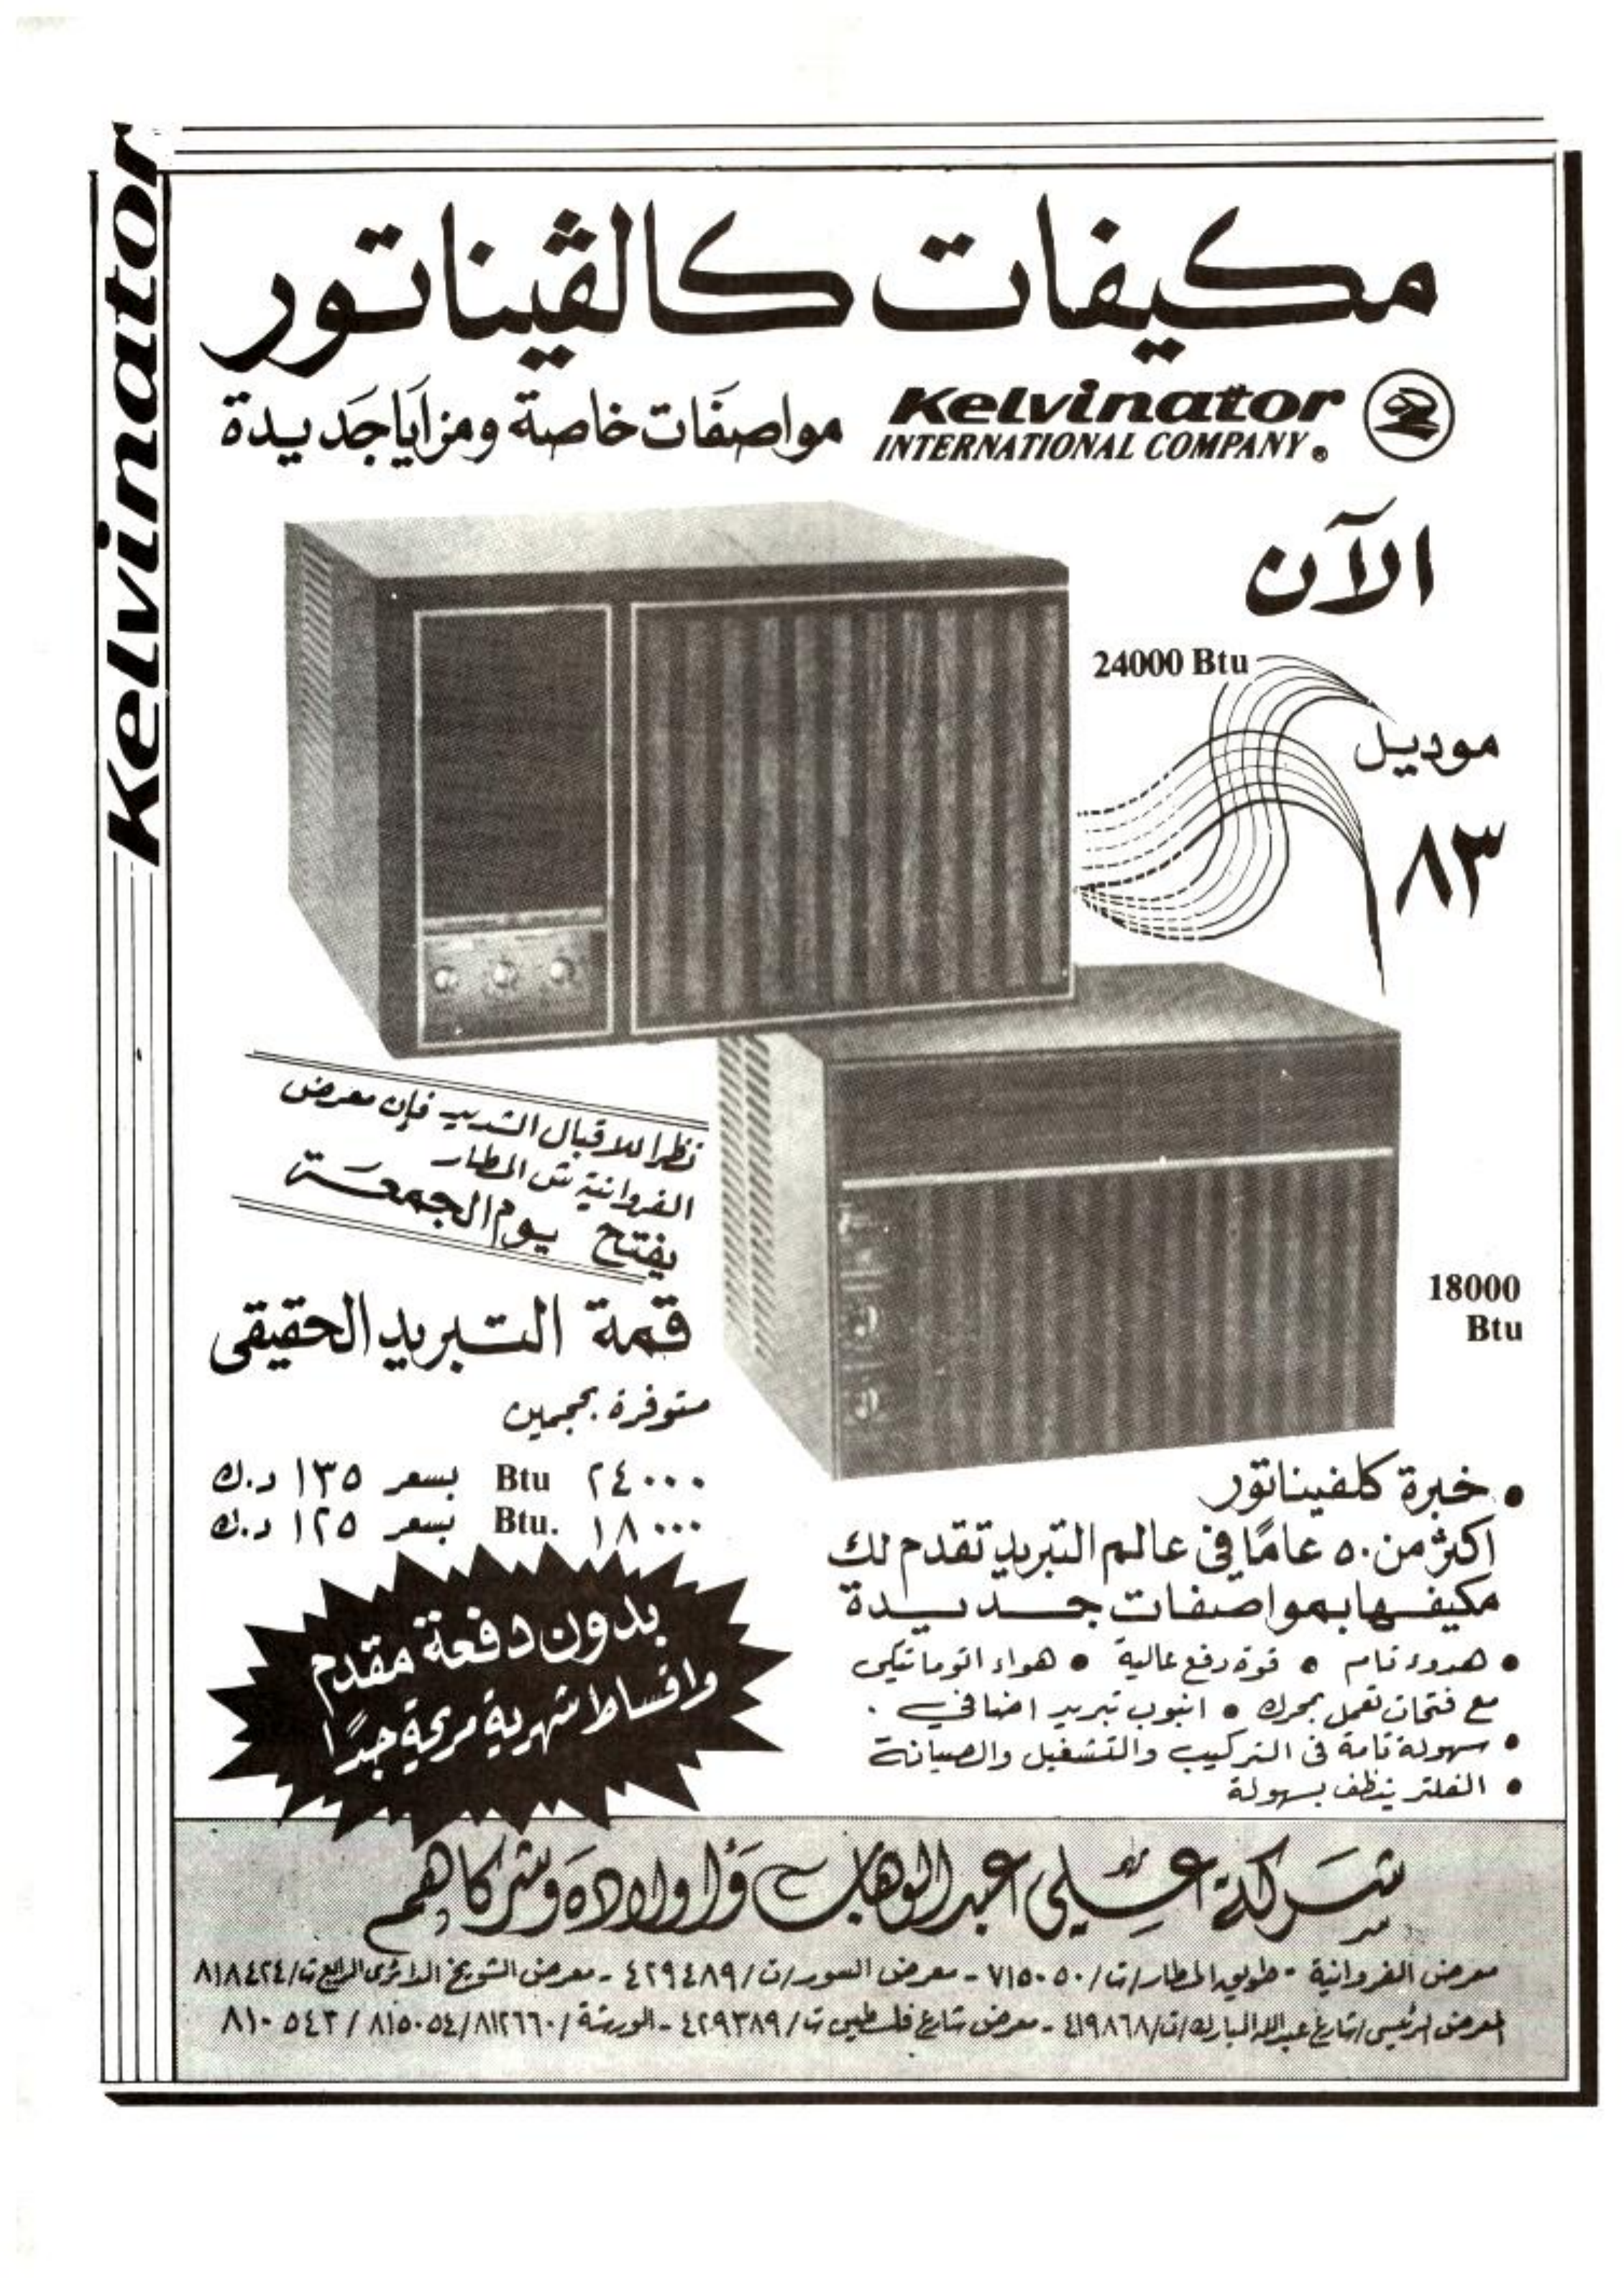 Kelvinator
مكيفات كالڤيناتور
Kelvinator
INTERNATIONAL COMPANY ®
مواصفات خاصة ومزايا جديدة
الآن
24000 Btu
موديل
٨٣
نظرا للاقبال الشديد فإن معرض
الفروانية ش المطار
يفتح يوم الجمعة
18000
Btu
قمة التبريد الحقيقى
متوفرة بحجمين
٢٤٠٠٠ Btu بسعر ١٣٥ د.ك
١٨٠٠٠ Btu. بسعر ١٢٥ د.ك
بدون دفعة مقدم
واقساط شهرية مريحة جداً
• خبرة كلفيناتور
اكثر من ٥٠ عامًا في عالم التبريد تقدم لك
مكيفها بمواصفات جديدة
• هدوء تام • قوة دفع عالية • هواء اتوماتيكي
مع فتحات تعمل بمحرك • انبوب تبريد اضافي .
• سهولة تامة في التركيب والتشغيل والصيانة
• الفلتر ينظف بسهولة
شركة علي عبدالوهاب واولاده وشركاهم
معرض الفروانية - طريق المطار/ت/٧١٥٠٥٠ - معرض السور/ت/٤٢٩٤٨٩ - معرض الشويخ الدائري الرابع ت/٨١٨٤٢٤
المعرض الرئيسي/شارع عبدالله المبارك/ت/٤١٩٨٦٨ - معرض شارع فلسطين ت/٤٢٩٣٨٩ - الورشة/٨١٢٦٦٠/٨١٥٠٥٤/٨١٠٥٤٣